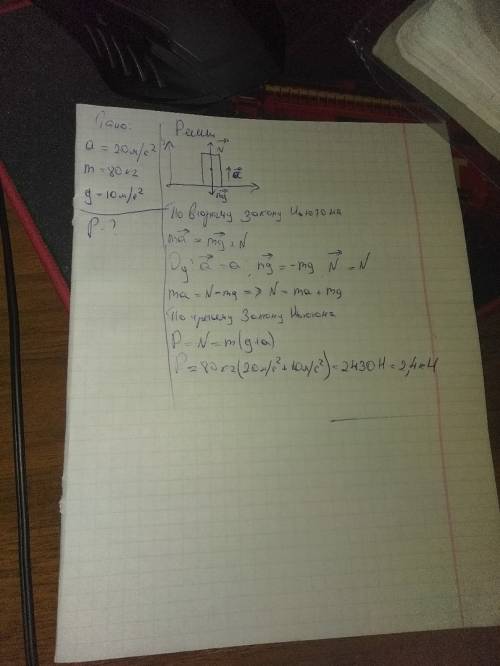 Дано:
a = 20 м/с²
m = 80 кг
g = 10 м/с²
P - ?
Решен
N
a
mg
По второму закону Ньютона
ma = mg + N
Oy: a = a, mg = -mg N = N
ma = N - mg => N = ma + mg
По третьему Закону Ньютона
P = N = m(g+a)
P = 80 кг (20 м/с² + 10 м/с²) = 2430 Н = 2,4 кН